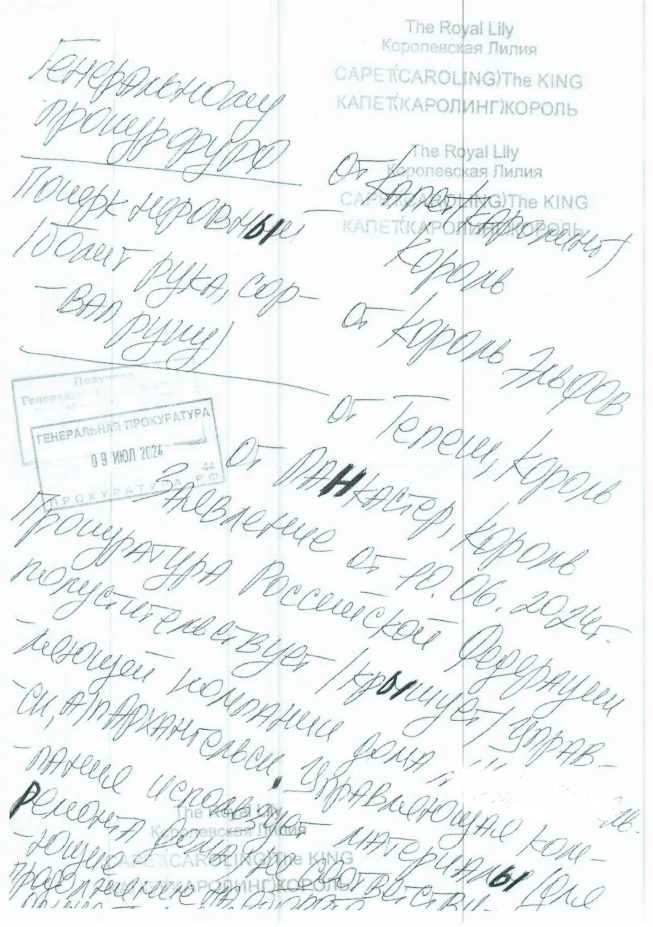 The Royal Lily
Королевская Лилия
CAPET(CAROLING)The KING
КАПЕТ(КАРОЛИНГ)КОРОЛЬ
Генеральному
прокурору РФ
The Royal Lily
Королевская Лилия
CAPET(CAROLING)The KING
КАПЕТ(КАРОЛИНГ)КОРОЛЬ
от Капет(Каролинг)
Король
Почерк неровный
(болит рука, сор-
-вал руку)
от Король Эльфов
от Тепеш, Король
от ЛАНкастер, Король
Получено
ГЕНЕРАЛЬНАЯ ПРОКУРАТУРА
09 ИЮЛ 2024
44
ПРОКУРАТУРА РФ
Заявление от 10.06.2024г.
Прокуратура Российской Федерации
попустительствует (крышует) управ-
-ляющей компании дома
Архангельск. Управляющая ком-
-пания использует материалы (для
ремонта дома) не соответству-
-ющие
The Royal Lily
Королевская Лилия
CAPET(CAROLING)The KING
КАПЕТ(КАРОЛИНГ)КОРОЛЬ